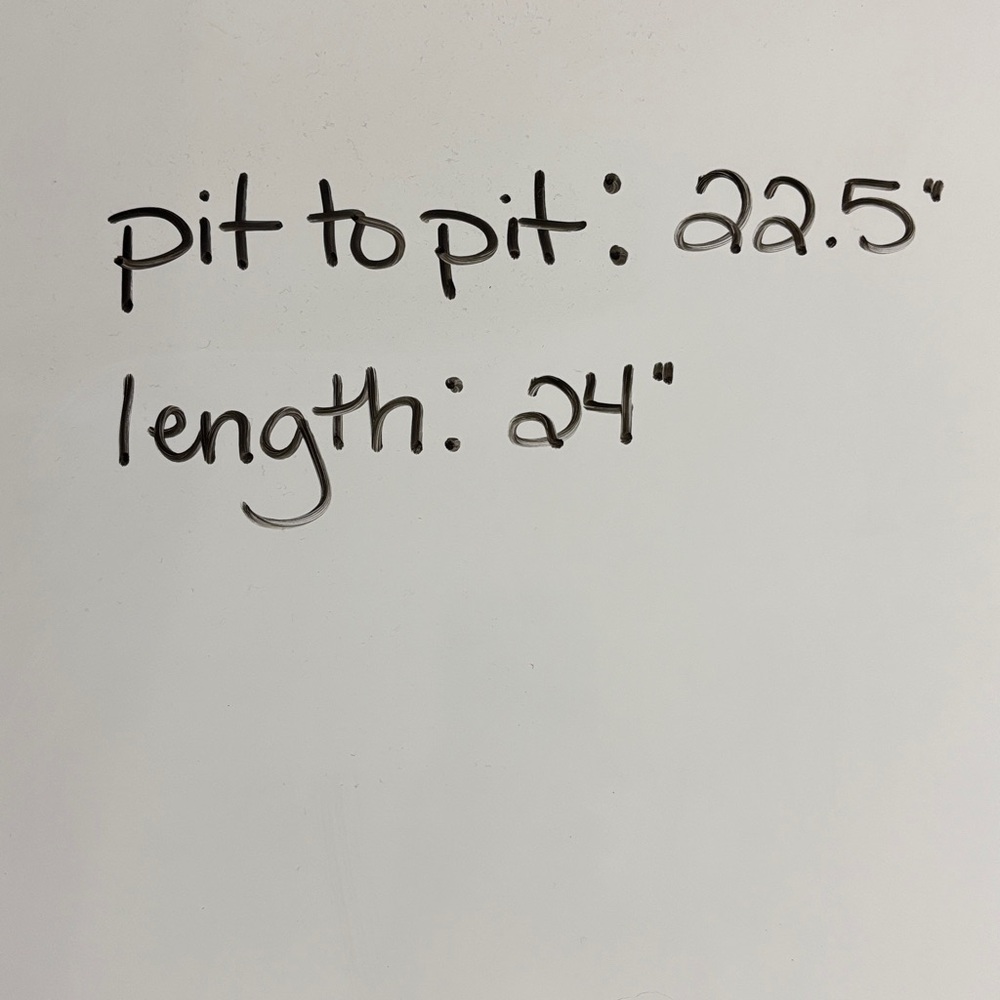 pit to pit: 22.5"
length: 24"